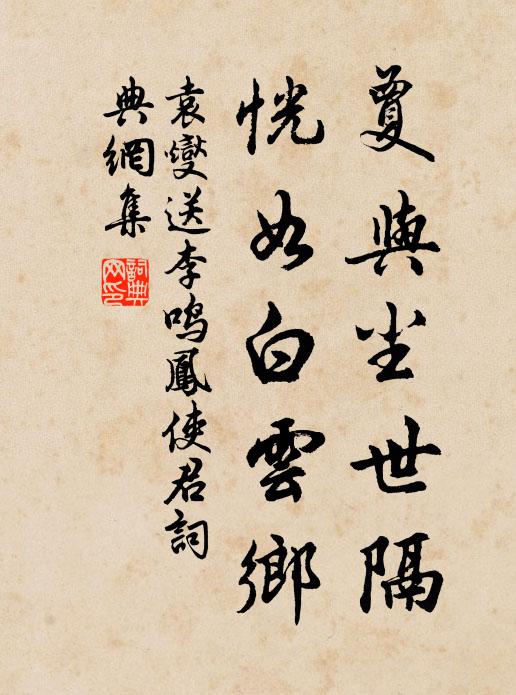 夐與尘世隔
恍如白雲鄉
袁燮送李鳴鳳使君詞
典網集
詞典网印